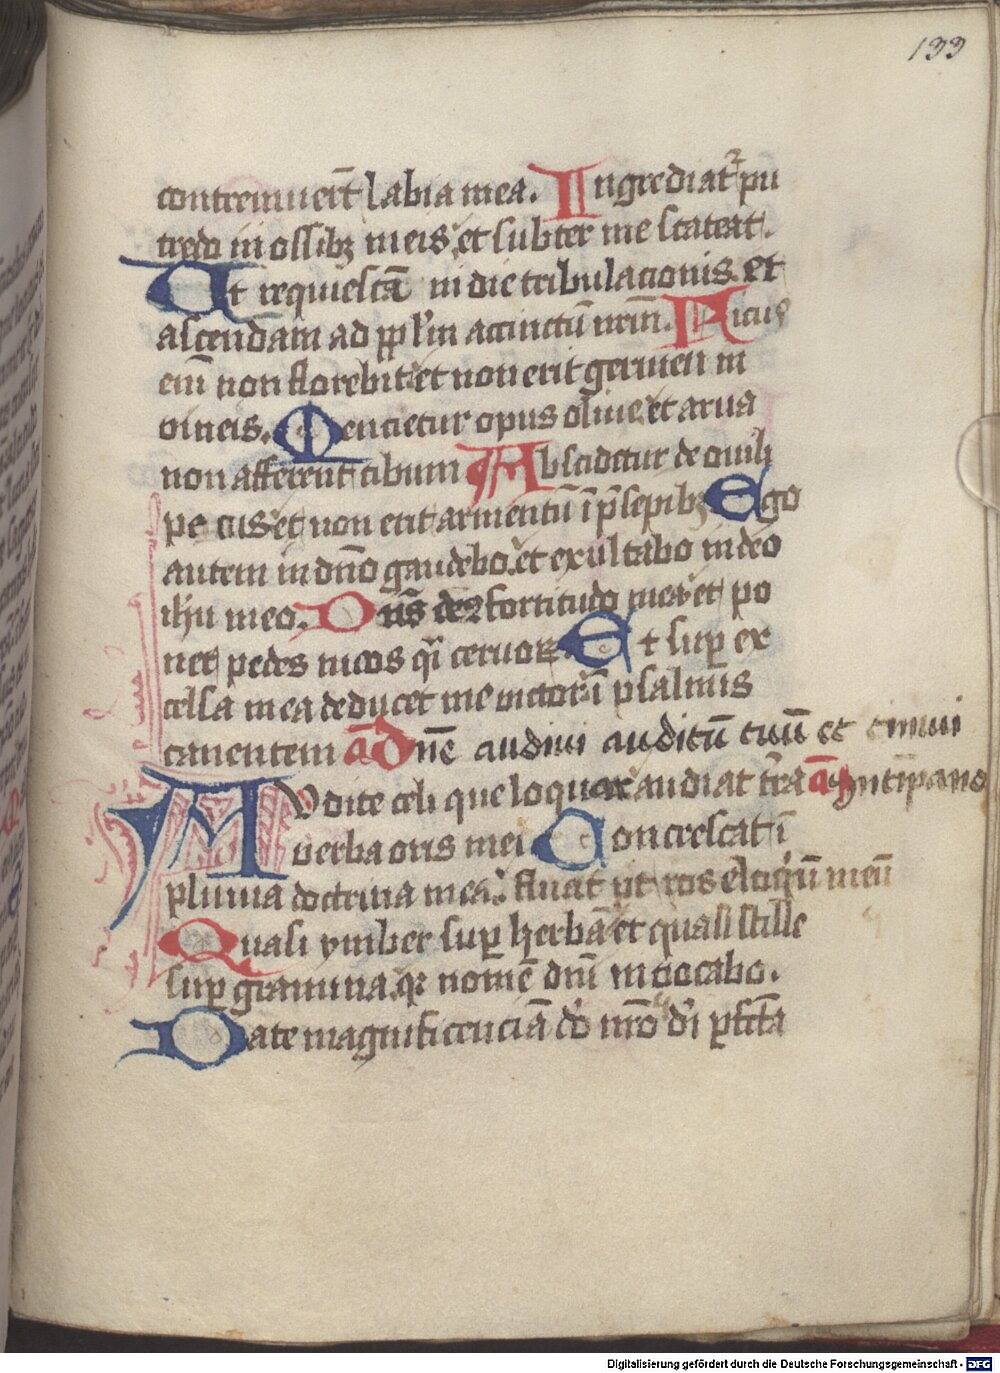 133
contremuer̄t labia mea. Ingrediatr pu
tredo in ossibꝫ meis et subter me scateat.
Ut requiescā in die tribulacionis et
ascendam ad ppl'm accinctū nr̄m. Ficus
em̄ non florebit et non erit germen in
vineis. Mencietur opus olive et arua
non afferent cibum Abscidetur de ouili
pe cus et non erit armentū ī p̄sepibꝫ Ego
autem in dn̄o gaudebo et exultabo in deo
ih̄u meo. Dn̄s deꝰ fortitudo mea et po
net pedes meos qͥ ceruoꝝ Et sup̱ ex
celsa mea deducet me victor ī psalmis
canentem a Dn̄e audiui auditū tuū et timui
AVdite celi que loquor audiat t̄ra a
verba oris mei Concrescat ī
pluuia doctrina mea fluat vt ros eloqͥū meū
Quasi ymber sup̱ herbā et quasi stille
sup̱ gramina qꝛ nomē dn̄i inuocabo.
Date magnificenciā dō nr̄o dī ꝑfc̄ta
Digitalisierung gefördert durch die Deutsche Forschungsgemeinschaft - DFG